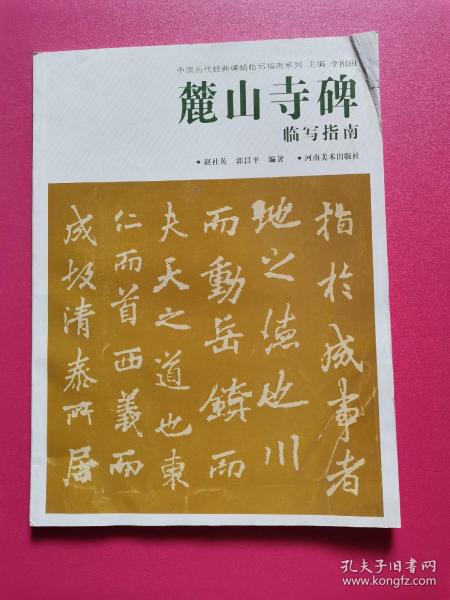 中国历代经典碑帖临写指南系列 主编 李刚田
麓山寺碑
临写指南
•赵社英 郭昌平 编著 •河南美术出版社
指於成事者
地之德也川
而動岳鎮而
夫天之道也東
仁而首西義而
成圾清泰所居
孔夫子旧书网
www.kongfz.com